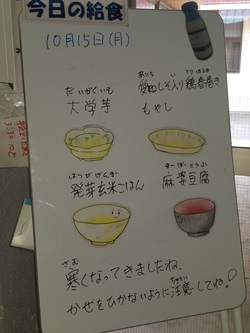 今日の給食
10月15日(月)
だいがくいも
大学芋
あいち とり はるま
愛知しそ入り鶏春巻き
もやし
はつが げんまい
発芽玄米ごはん
まーぼ どうふ
麻婆豆腐
さむ
寒くなってきましたね。
かぜをひかないように注意してね!